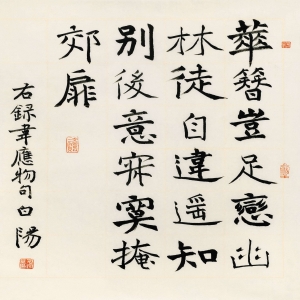 華簪豈足戀幽
林徒自違遥知
别後意寂寞掩
郊扉
右録韋應物句白陽